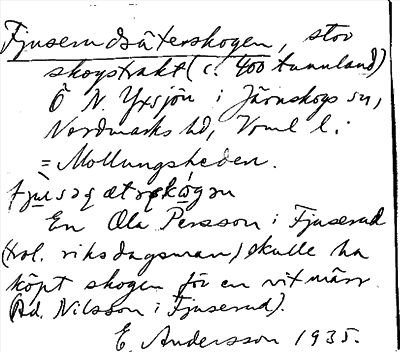 Fjuserudsäterskogen, stor
skogstrakt (c. 400 tunnland)
Ö N. Yxsjön i Järnskogs sn,
Nordmarks hd, Vrml l.
= Mollungsheden.
En Ola Persson i Fjuserud
(trol. riksdagsman) skulle ha
köpt skogen för en vit märr.
(Ad. Nilsson i Fjuserud).
E. Andersson 1935.